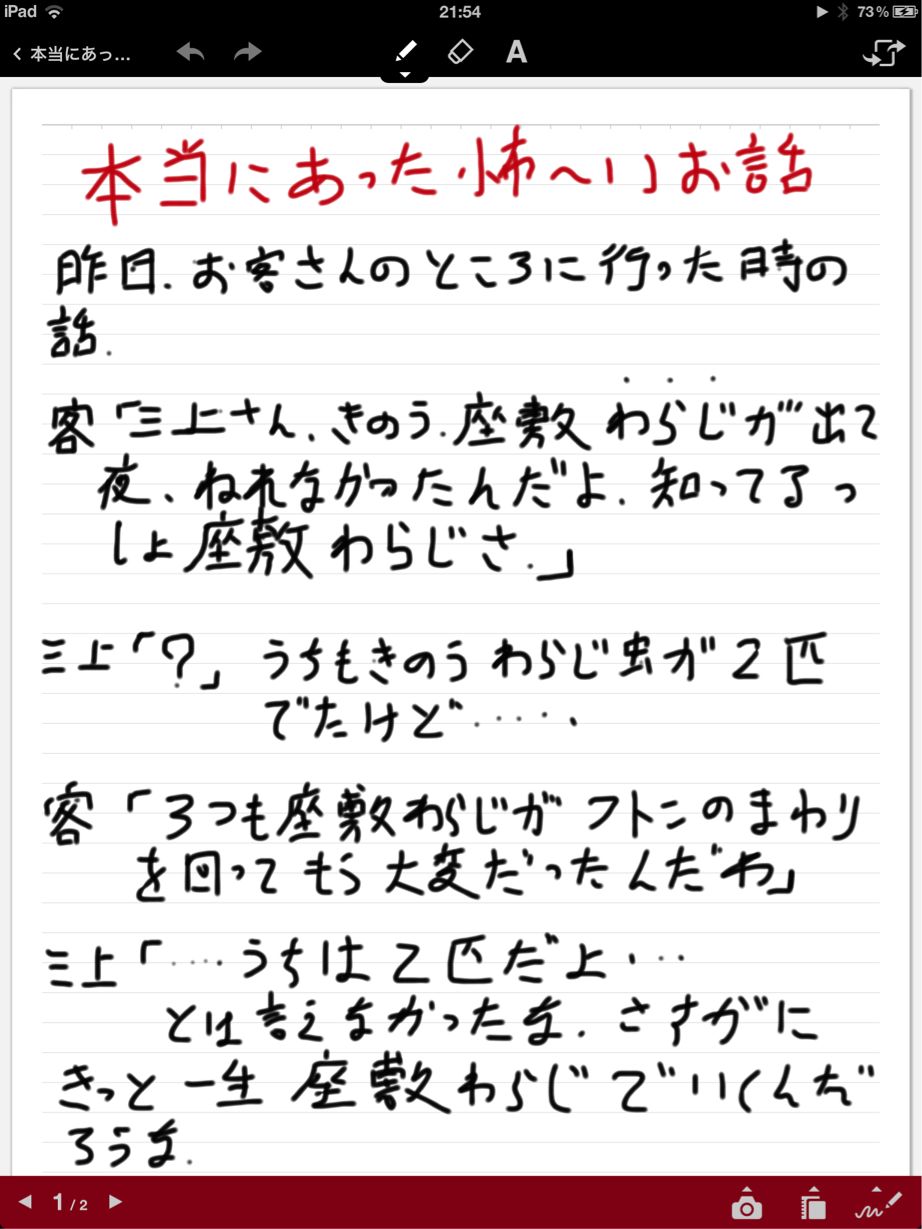 iPad 21:54 73%
本当にあっ… A
本当にあった怖〜いお話
昨日.お客さんのところに行った時の
話.
客「三上さん、きのう.座敷わらじが出て
夜、ねれなかったんだよ.知ってるっ
しょ座敷わらじさ.」
三上「?」うちもきのうわらじ虫が2匹
でたけど・・・・・
客「3つも座敷わらじがフトンのまわり
を回ってもう大変だったんだわ」
三上「・・・・うちは2匹だよ・・・
とは言えなかったな.さすがに
きっと一生座敷わらじでいくんだ
ろうな.
1/2